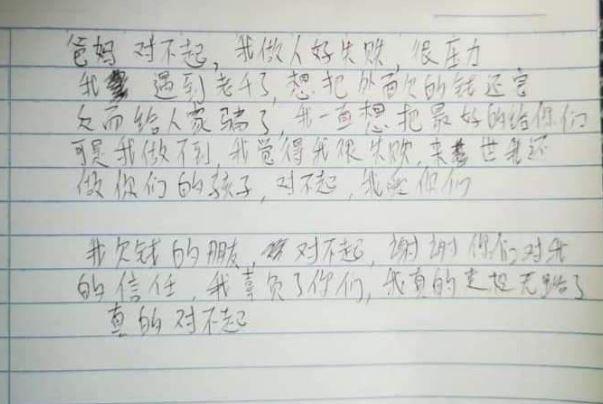 爸妈 对不起，我做人好失败，很压力
我 遇到老千了，想把外面欠的钱还完
反而给人家骗了，我一直想把最好的给你们
可是我做不到，我觉得我很失败，来世我还
做你们的孩子，对不起，我爱你们
我欠钱的朋友，对不起，谢谢你们对我
的信任，我辜负了你们，我真的走投无路了
真的对不起